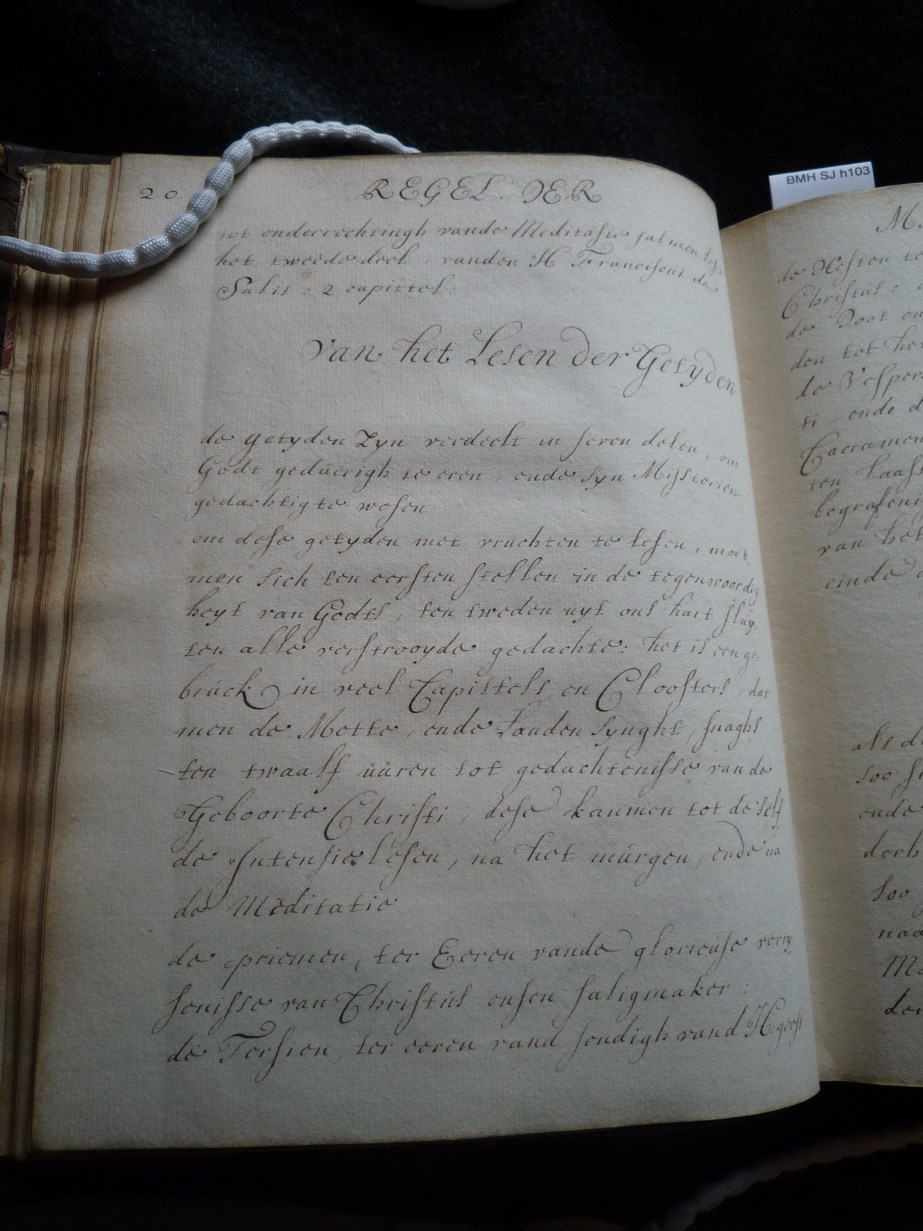 20 REGEL DER
tot onderrechtingh vande Meditasie sal men
het tweede deel vanden H Franciscus de
Salis : 2 capittel :
Van het Lesen der Getyden
de getyden Zyn verdeelt in seven delen, om
Godt geduerigh te eeren, ende syn Misterien
gedachtigte wesen
om dese getyden met vruchten te lesen, moet
men sich ten eersten stellen in de tegenwoordig
heyt van Godts, ten tweden uyt ons hart sluy
ten alle verstrooyde gedachte: het is een ge
brúck in veel Capittels en Cloosters, dat
men de Mette, ende Lauden synght, snaghs
ten twaalf úúren tot gedachtenisse van de
Geboorte Christi, dese kanmen tot de self
de Intensie lesen, na het múrgen, ende na
de Meditatie
de priemen, ter Eeren vande glorieúse verry
senisse van Christús onsen saligmaker :
de Tersien, ter eeren vand sendigh vand H: geest
BMH SJ h103
de Hesten
Christús :
de Doot
den tot het
de Vesper
ti, ende
Sacramen
ten laas
begrafeni
van het
einde
als d
soo
ende
derh
soo
naa
M
der